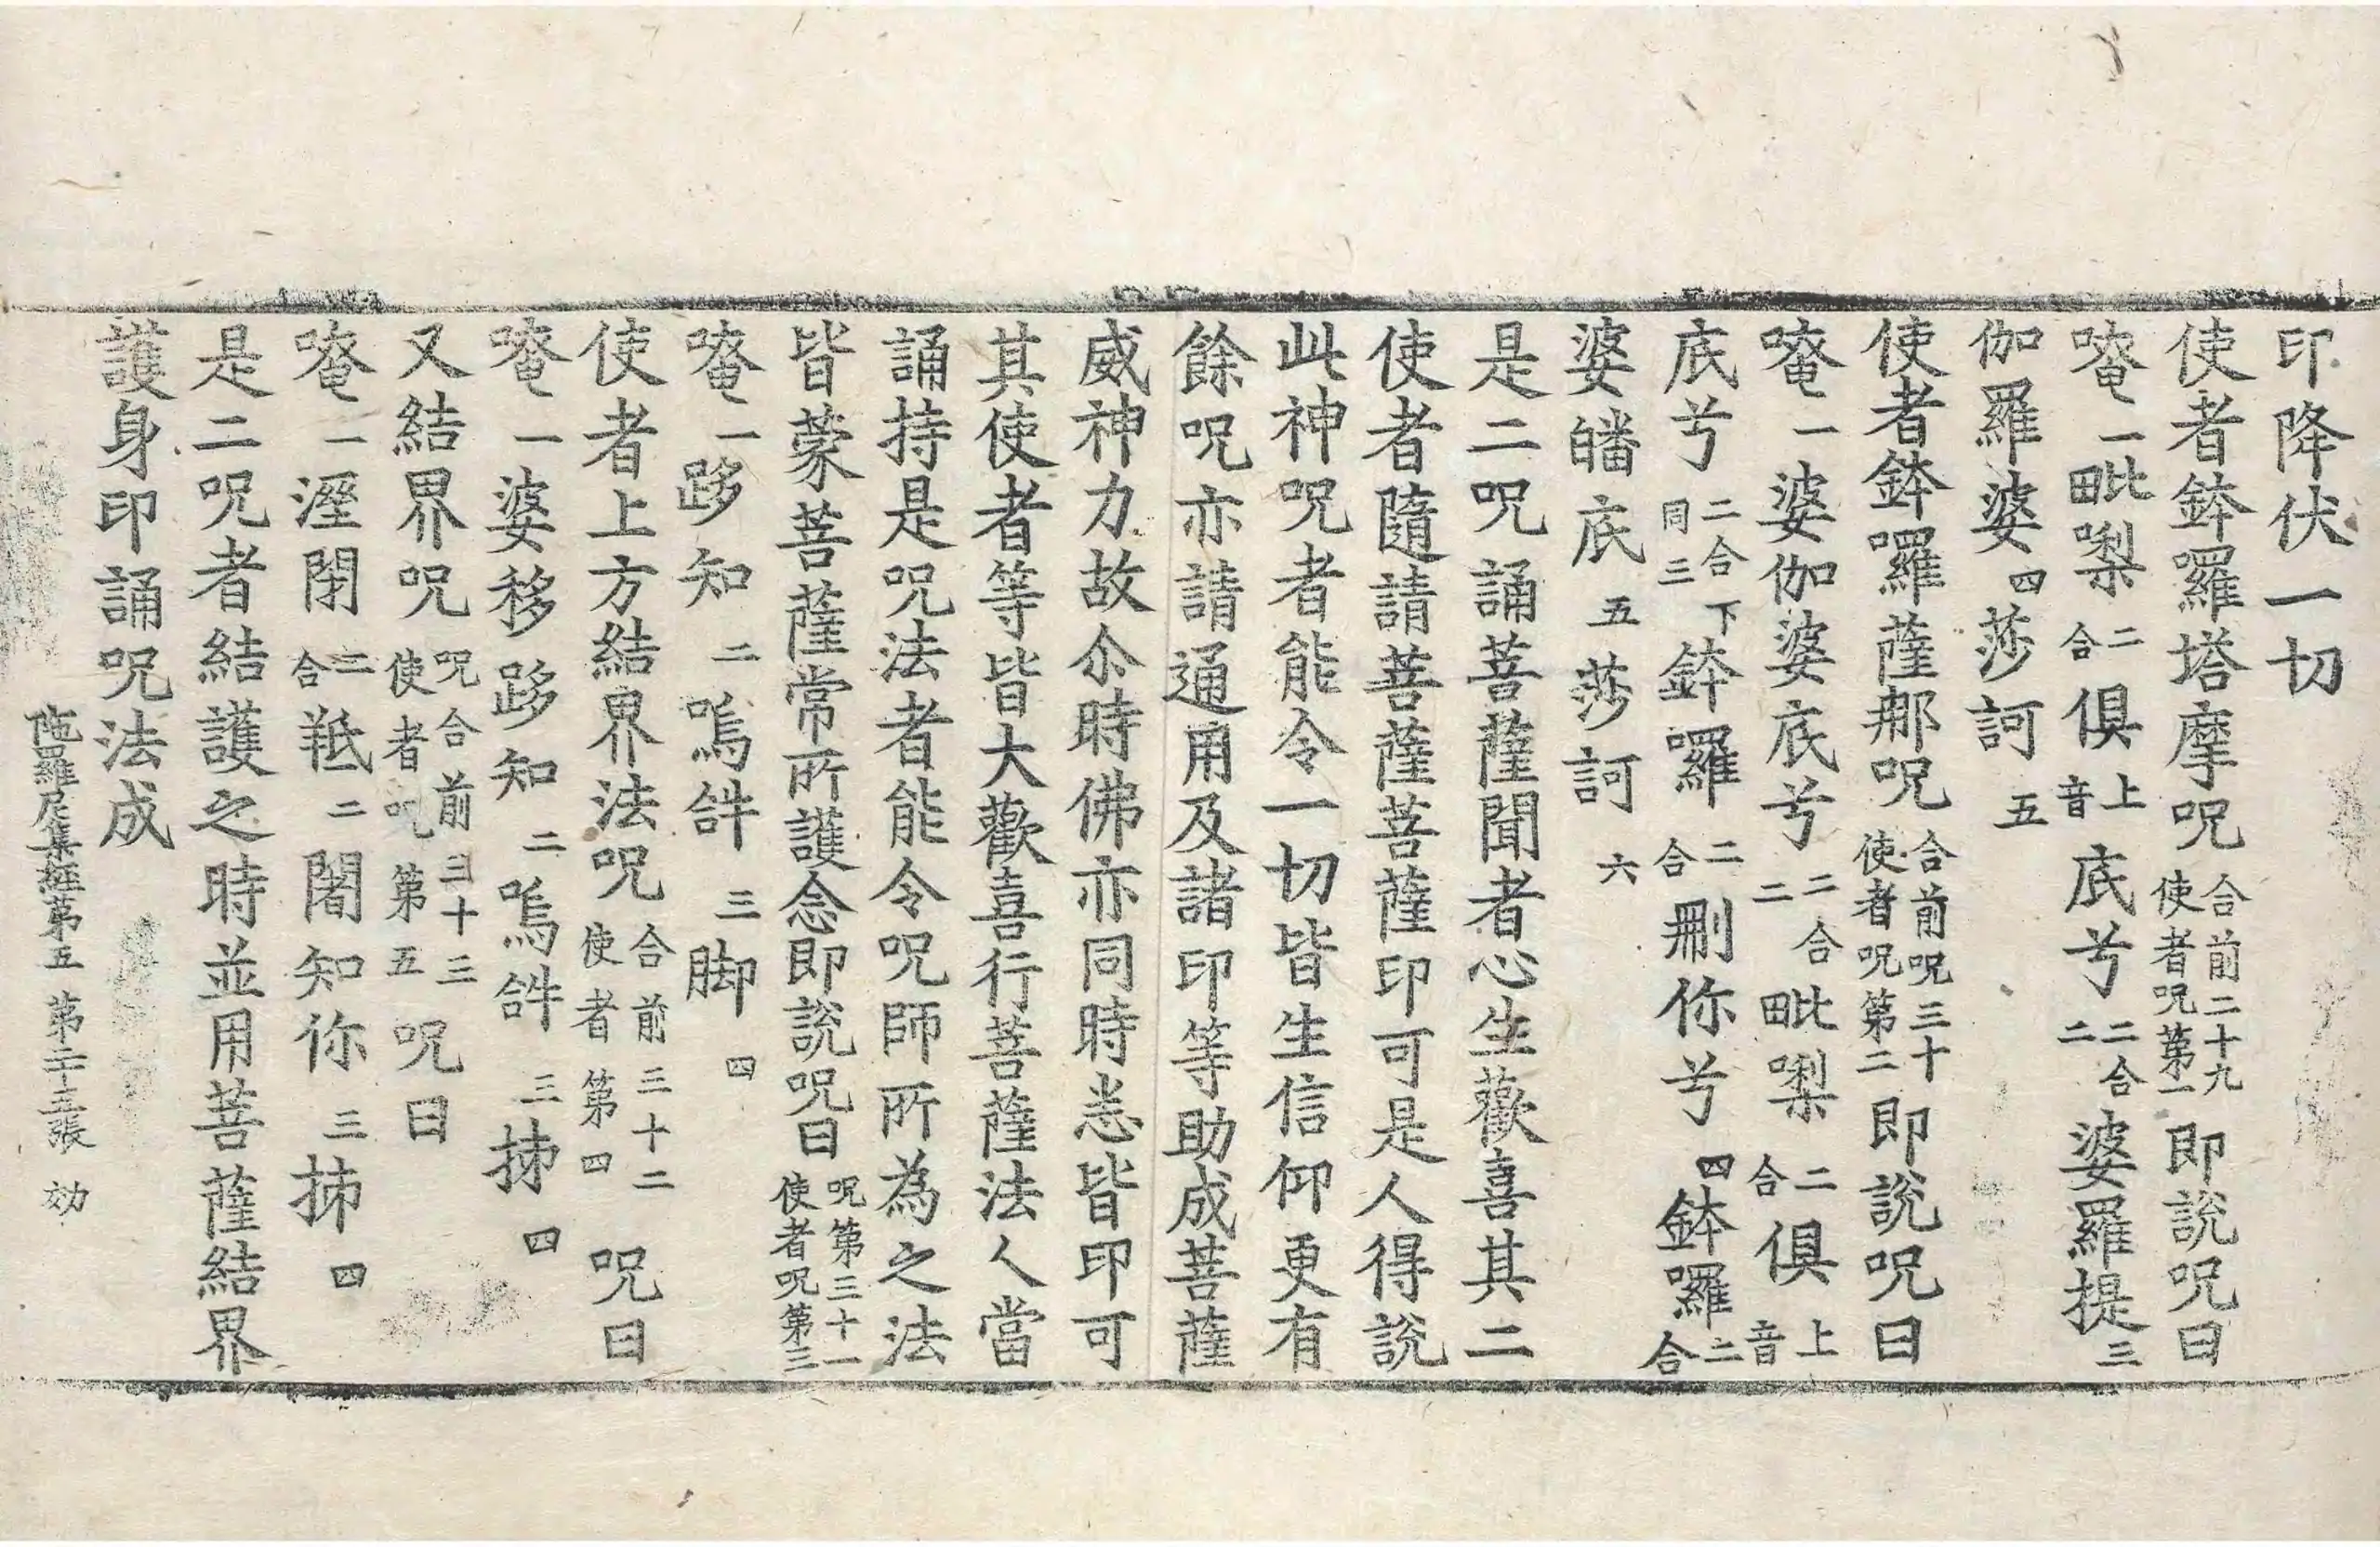 印降伏一切
使者鉢羅塔摩呪合前二十九使者呪第一即說呪曰
唵一毗㗚二合俱上音底兮二合二婆羅提三
伽羅婆四莎訶五
使者鉢囉薩那呪合前呪三十使者呪第二即說呪曰
唵一婆伽婆底兮二合二毗㗚二合俱上音
底兮二合下同三鉢囉二合刪你兮四鉢囉二合
婆皤底五莎訶六
是二呪誦菩薩聞者心生歡喜其二
使者隨請菩薩菩薩印可是人得說
此神呪者能令一切皆生信仰更有
餘呪亦請通用及諸印等助成菩薩
威神力故尒時佛亦同時悉皆印可
其使者等皆大歡喜行菩薩法人當
誦持是呪法者能令呪師所為之法
皆蒙菩薩常所護念即說呪曰呪第三十一使者呪第三
唵一跢知二嗚𤙖三脚四
使者上方結界法呪合前三十二使者第四呪曰
唵一婆移跢知二嗚𤙖三抪四
又結界呪呪合前三十三使者呪第五呪曰
唵一溼閇二合羝二闍知你三抪四
是二呪者結護之時並用菩薩結界
護身印誦呪法成
陁羅尼集經第五 第二十三張 効